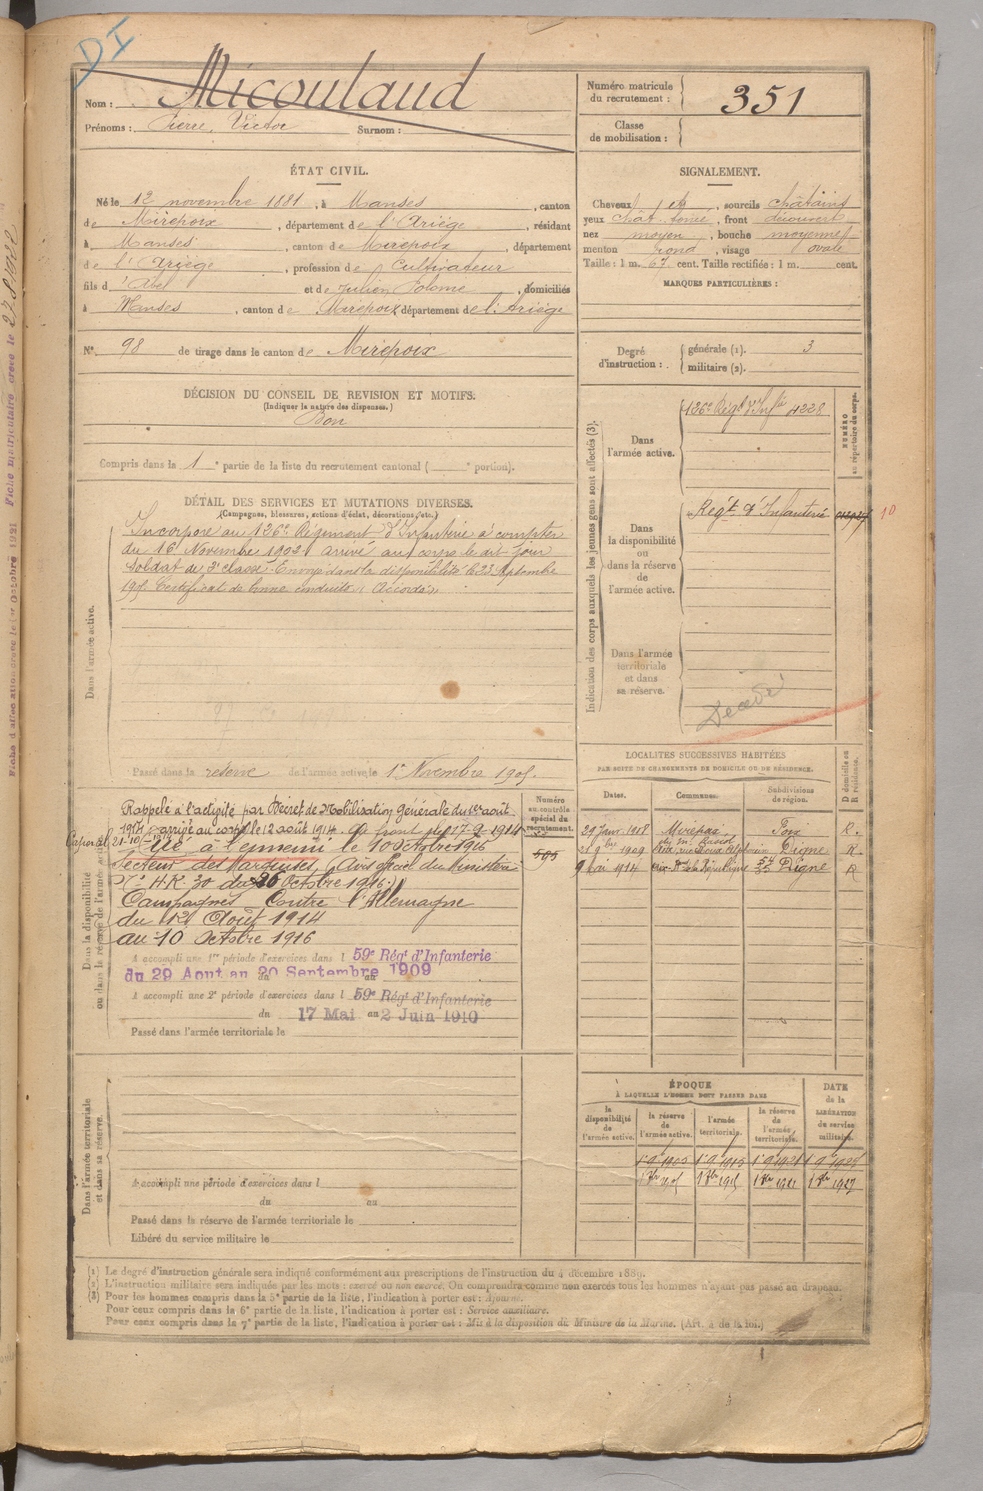 DI
Nom : Micoulaud
Prénoms : Pierre, Victor Surnom :
Numéro matricule du recrutement : 351
Classe de mobilisation :
ÉTAT CIVIL.
Né le 12 novembre 1881, à Manses, canton
de Mirepoix, département de l'Ariège, résidant
à Manses, canton de Mirepoix, département
de l'Ariège, profession de Cultivateur
fils d' Abel et de Julien, Polome, domiciliés
à Manses, canton de Mirepoix département de l'Ariège
N° 98 de tirage dans le canton de Mirepoix
SIGNALEMENT.
Cheveux chât, sourcils châtains
yeux chât. foncé, front découvert
nez moyen, bouche moyenne
menton rond, visage ovale
Taille : 1 m. 67 cent. Taille rectifiée : 1 m. cent.
MARQUES PARTICULIÈRES :
Degré d'instruction : générale (1). 3
militaire (2).
DÉCISION DU CONSEIL DE REVISION ET MOTIFS.
(Indiquer la nature des dispenses.)
Bon
Compris dans la 1e partie de la liste du recrutement cantonal ( e portion).
DÉTAIL DES SERVICES ET MUTATIONS DIVERSES.
(Campagnes, blessures, actions d'éclat, décorations, etc.)
Dans l'armée active.
Incorporé au 126e Régiment d'Infanterie à compter
du 16 Novembre 1902 arrivé au corps le dit jour
Soldat de 2e classe. Envoyé dans la disponibilité le 23 Septembre
1905 Certificat de bonne conduite : Accordé
Passé dans la réserve de l'armée active le 1er Novembre 1905.
Indication des corps auxquels les jeunes gens sont affectés (3).
NUMÉRO au répertoire du corps.
Dans l'armée active.
126e Régt d'Infie 4228
Dans la disponibilité ou dans la réserve de l'armée active.
Régt d'Infanterie
10
Dans l'armée territoriale et dans sa réserve.
Décédé
Dans la disponibilité ou dans la réserve de l'armée active.
Numéro au contrôle spécial du recrutement.
585
Rappelé à l'activité par Décret de Mobilisation Générale du 1er août
1914 arrivé au corps le 12 août 1914. Au front du 17-9-1914
Caporal 21-10-
Tué à l'ennemi le 10 octobre 1916
Secteur des (Avis officiel du Ministère
N° H.K. 30 du 26 Octobre 1916.)
Campagnes Contre l'Allemagne
du 12 Août 1914
au 10 Octobre 1916
A accompli une 1re période d'exercices dans l 59e Régt d'Infanterie
du 29 Aout au 20 Septembre 1909
A accompli une 2e période d'exercices dans l 59e Régt d'Infanterie
du 17 Mai au 2 Juin 1910
Passé dans l'armée territoriale le
LOCALITÉS SUCCESSIVES HABITÉES
PAR SUITE DE CHANGEMENTS DE DOMICILE OU DE RÉSIDENCE.
Dates. Communes. Subdivisions de région. D domicile ou R résidence.
29 Janv. 1908 Mirepoix Foix R.
1909 Aix, rue Digne R.
9 Mai 1914 Aix de la République Digne R
ÉPOQUE
À LAQUELLE L'HOMME DOIT PASSER DANS
DATE de la LIBÉRATION du service militaire.
la disponibilité de l'armée active. la réserve de l'armée active. l'armée territoriale. la réserve de l'armée territoriale.
1 9 1905 1 9 1915 1 9 1921 1 9 1927
Dans l'armée territoriale et dans sa réserve.
A accompli une période d'exercices dans l
du au
Passé dans la réserve de l'armée territoriale le
Libéré du service militaire le
(1) Le degré d'instruction générale sera indiqué conformément aux prescriptions de l'instruction du 4 décembre 1889.
(2) L'instruction militaire sera indiquée par les mots : exercé ou non exercé. On comprendra comme non exercés tous les hommes n'ayant pas passé au drapeau.
(3) Pour les hommes compris dans la 5e partie de la liste, l'indication à porter est : Ajourné.
Pour ceux compris dans la 6e partie de la liste, l'indication à porter est : Service auxiliaire.
Pour ceux compris dans la 7e partie de la liste, l'indication à porter est : Mis à la disposition du Ministre de la Marine. (Art. 4 de la loi.)